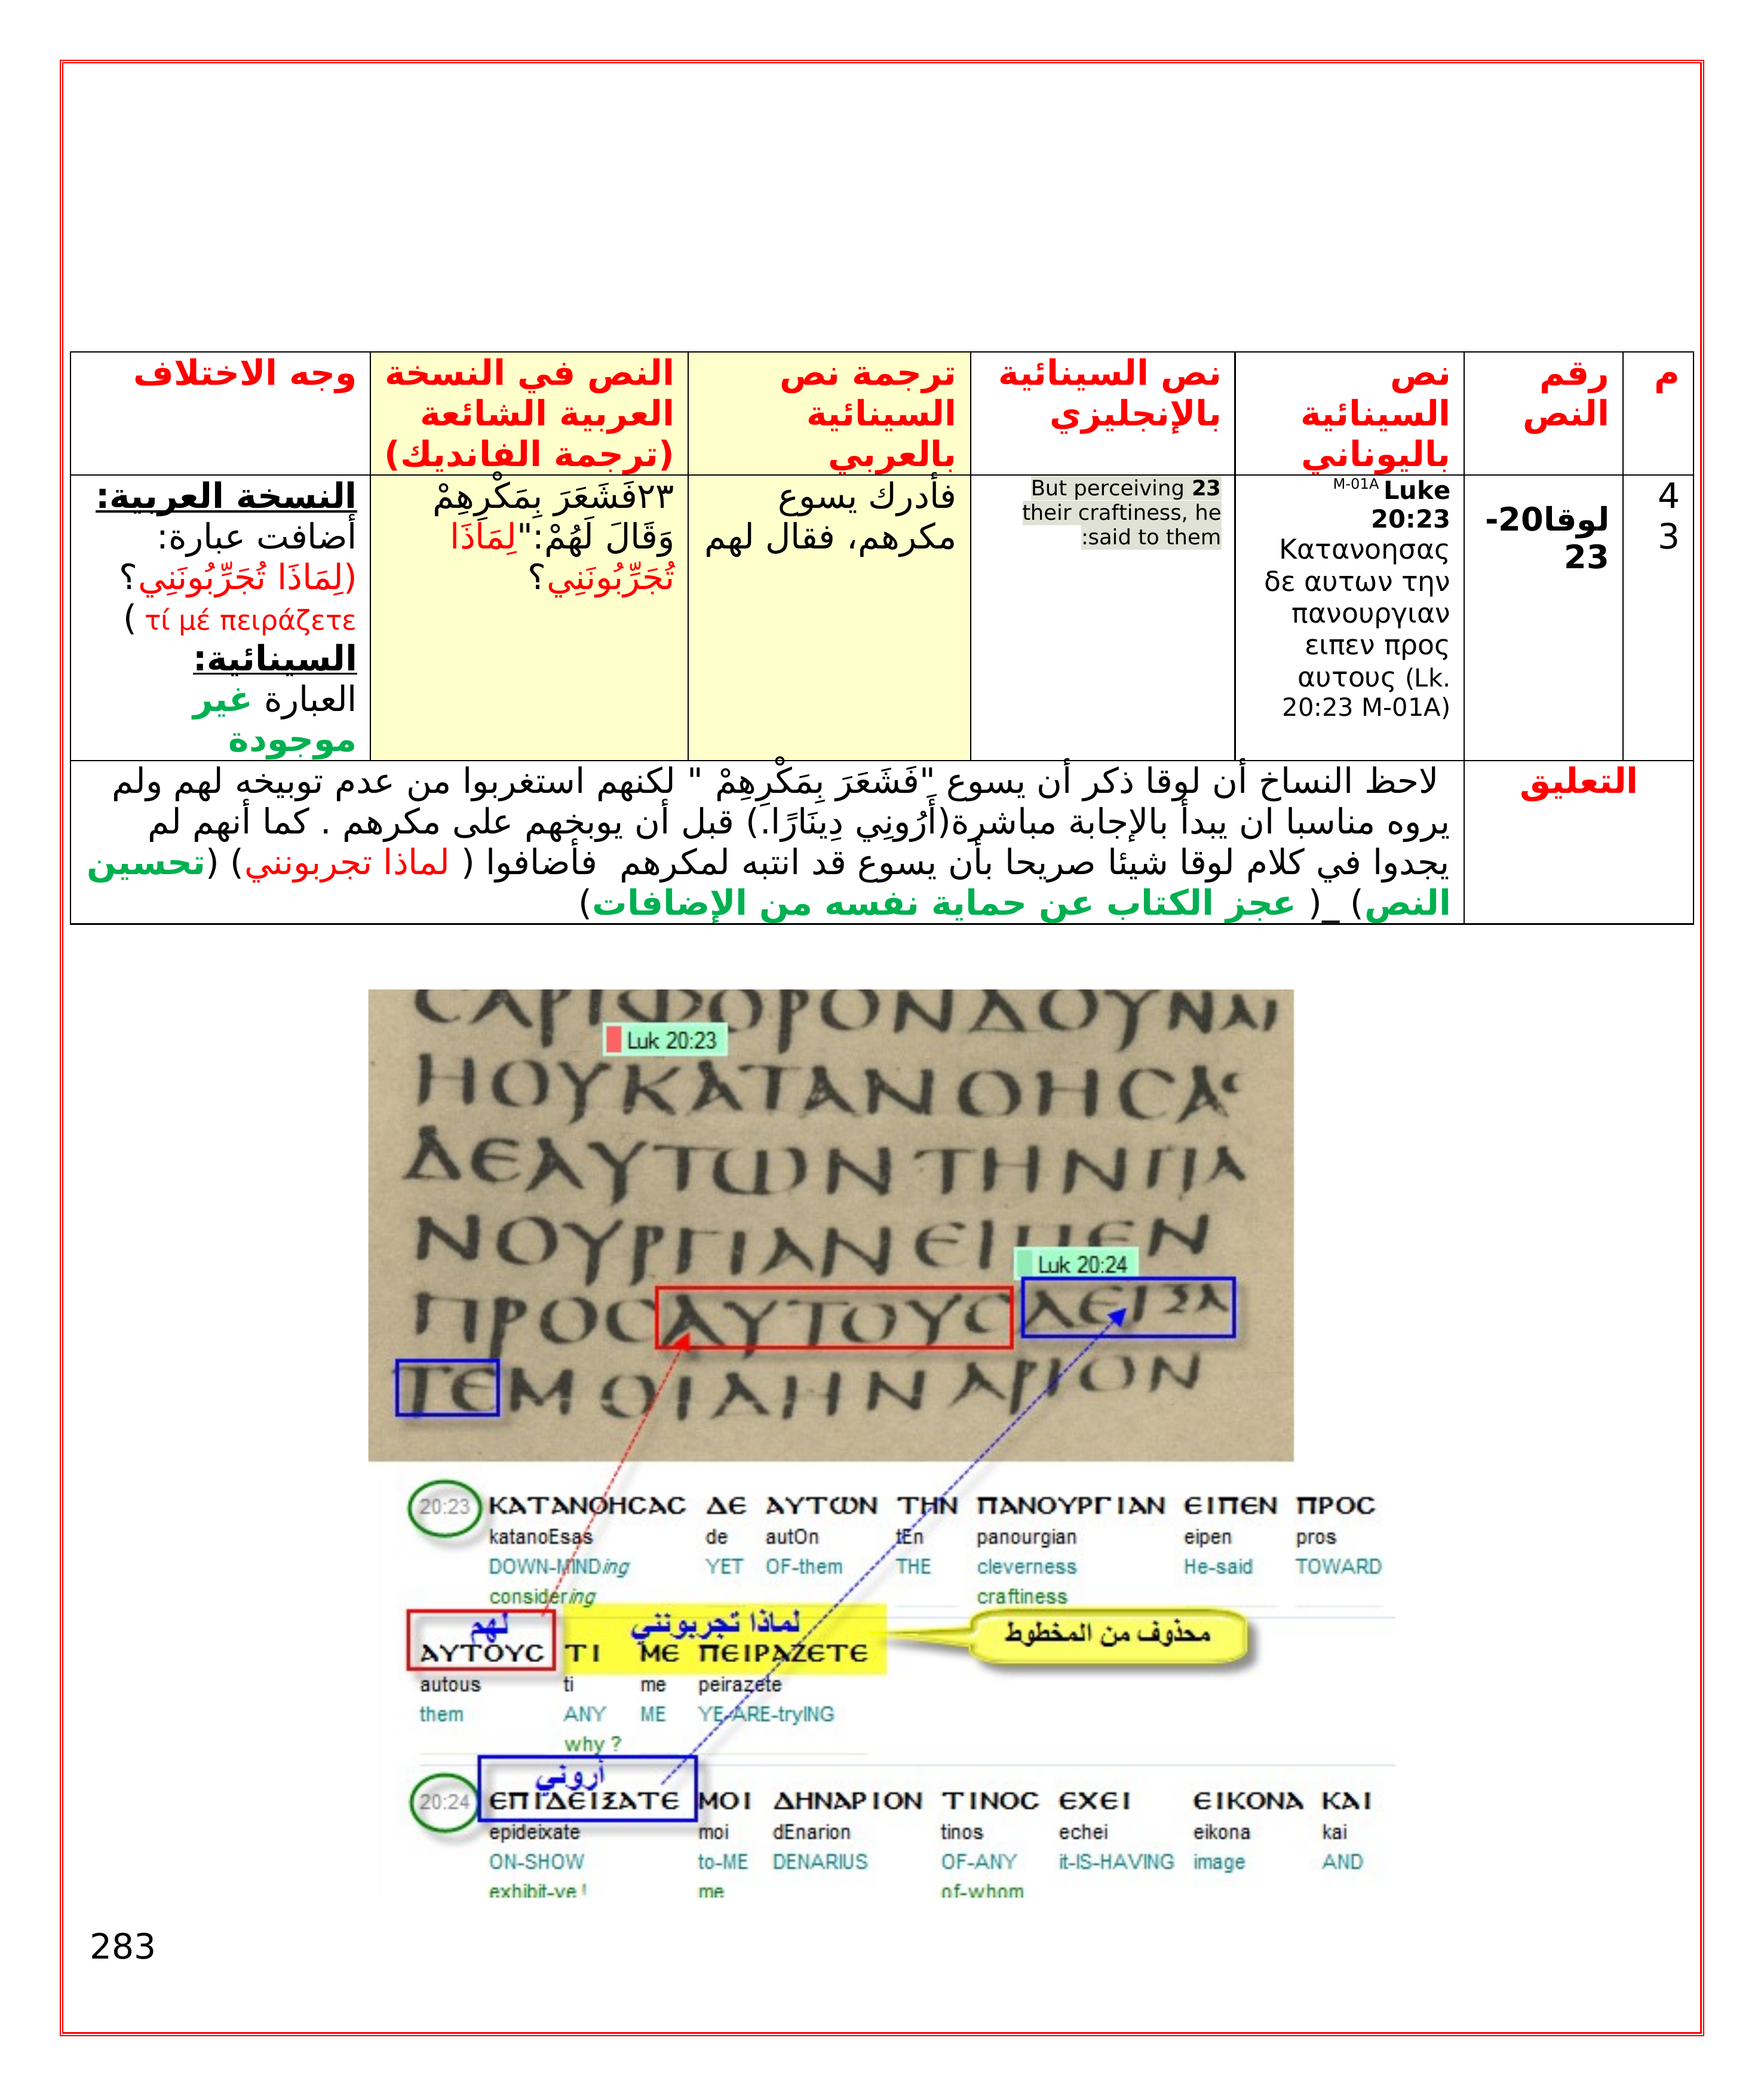 م
رقم
النص
نص
السينائية
باليوناني
نص السينائية
بالإنجليزي
ترجمة نص
السينائية
بالعربي
النص في النسخة
العربية الشائعة
(ترجمة الفانديك)
وجه الاختلاف
4
3
لوقا20-
23
M-01A Luke
20:23
Κατανοησας
δε αυτων την
πανουργιαν
ειπεν προς
αυτους (Lk.
20:23 M-01A)
But perceiving 23
their craftiness, he
:said to them
فأدرك يسوع
مكرهم، فقال لهم
٢٣فَشَعَرَ بِمَكْرِهِمْ
وَقَالَ لَهُمْ:"لِمَاذَا
تُجَرِّبُونَنِي؟
النسخة العربية:
أضافت عبارة:
(لِمَاذَا تُجَرِّبُونَنِي؟
τί μέ πειράζετε )
السينائية:
العبارة غير
موجودة
التعليق
لاحظ النساخ أن لوقا ذكر أن يسوع "فَشَعَرَ بِمَكْرِهِمْ " لكنهم استغربوا من عدم توبيخه لهم ولم
يروه مناسبا ان يبدأ بالإجابة مباشرة(أَرُونِي دِينَارًا.) قبل أن يوبخهم على مكرهم . كما أنهم لم
يجدوا في كلام لوقا شيئا صريحا بأن يسوع قد انتبه لمكرهم فأضافوا ( لماذا تجربونني) (تحسين
النص) _( عجز الكتاب عن حماية نفسه من الإضافات)
ϹΑΡΙΦΟΡΟΝΔΟΥΝΑΙ
Luk 20:23
ΗΟΥΚΑΤΑΝΟΗϹΑϹ
ΔΕΑΥΤΩΝΤΗΝΠΑ
ΝΟΥΡΓΙΑΝΕΙΠΕΝ
Luk 20:24
ΠΡΟϹΑΥΤΟΥϹΔΕΙΞΑ
ΤΕΜΟΙΔΗΝΑΡΙΟΝ
20:23 ΚΑΤΑΝΟΗϹΑϹ ΔΕ ΑΥΤΩΝ ΤΗΝ ΠΑΝΟΥΡΓΙΑΝ ΕΙΠΕΝ ΠΡΟϹ
katanoEsas de autOn tEn panourgian eipen pros
DOWN-MINDing YET OF-them THE cleverness He-said TOWARD
considering craftiness
لهم لماذا تجربونني محذوف من المخطوط
ΑΥΤΟΥϹ ΤΙ ΜΕ ΠΕΙΡΑΖΕΤΕ
autous ti me peirazete
them ANY ME YE-ARE-tryING
why ?
أروني
20:24 ΕΠΙΔΕΙΞΑΤΕ ΜΟΙ ΔΗΝΑΡΙΟΝ ΤΙΝΟϹ ΕΧΕΙ ΕΙΚΟΝΑ ΚΑΙ
epideixate moi dEnarion tinos echei eikona kai
ON-SHOW to-ME DENARIUS OF-ANY it-IS-HAVING image AND
exhibit-ye ! me of-whom
283